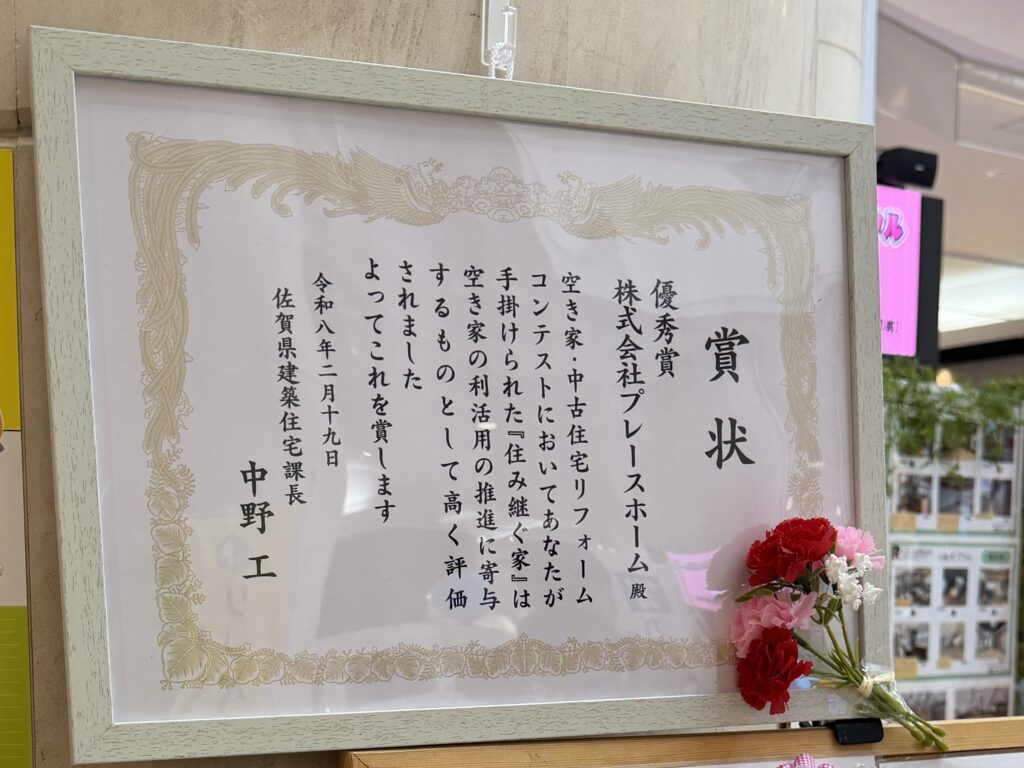 賞状
優秀賞
株式会社プレースホーム 殿
空き家・中古住宅リフォーム
コンテストにおいてあなたが
手掛けられた『住み継ぐ家』は
空き家の利活用の推進に寄与
するものとして高く評価
されました
よってこれを賞します
令和八年二月十九日
佐賀県建築住宅課長
中野 工